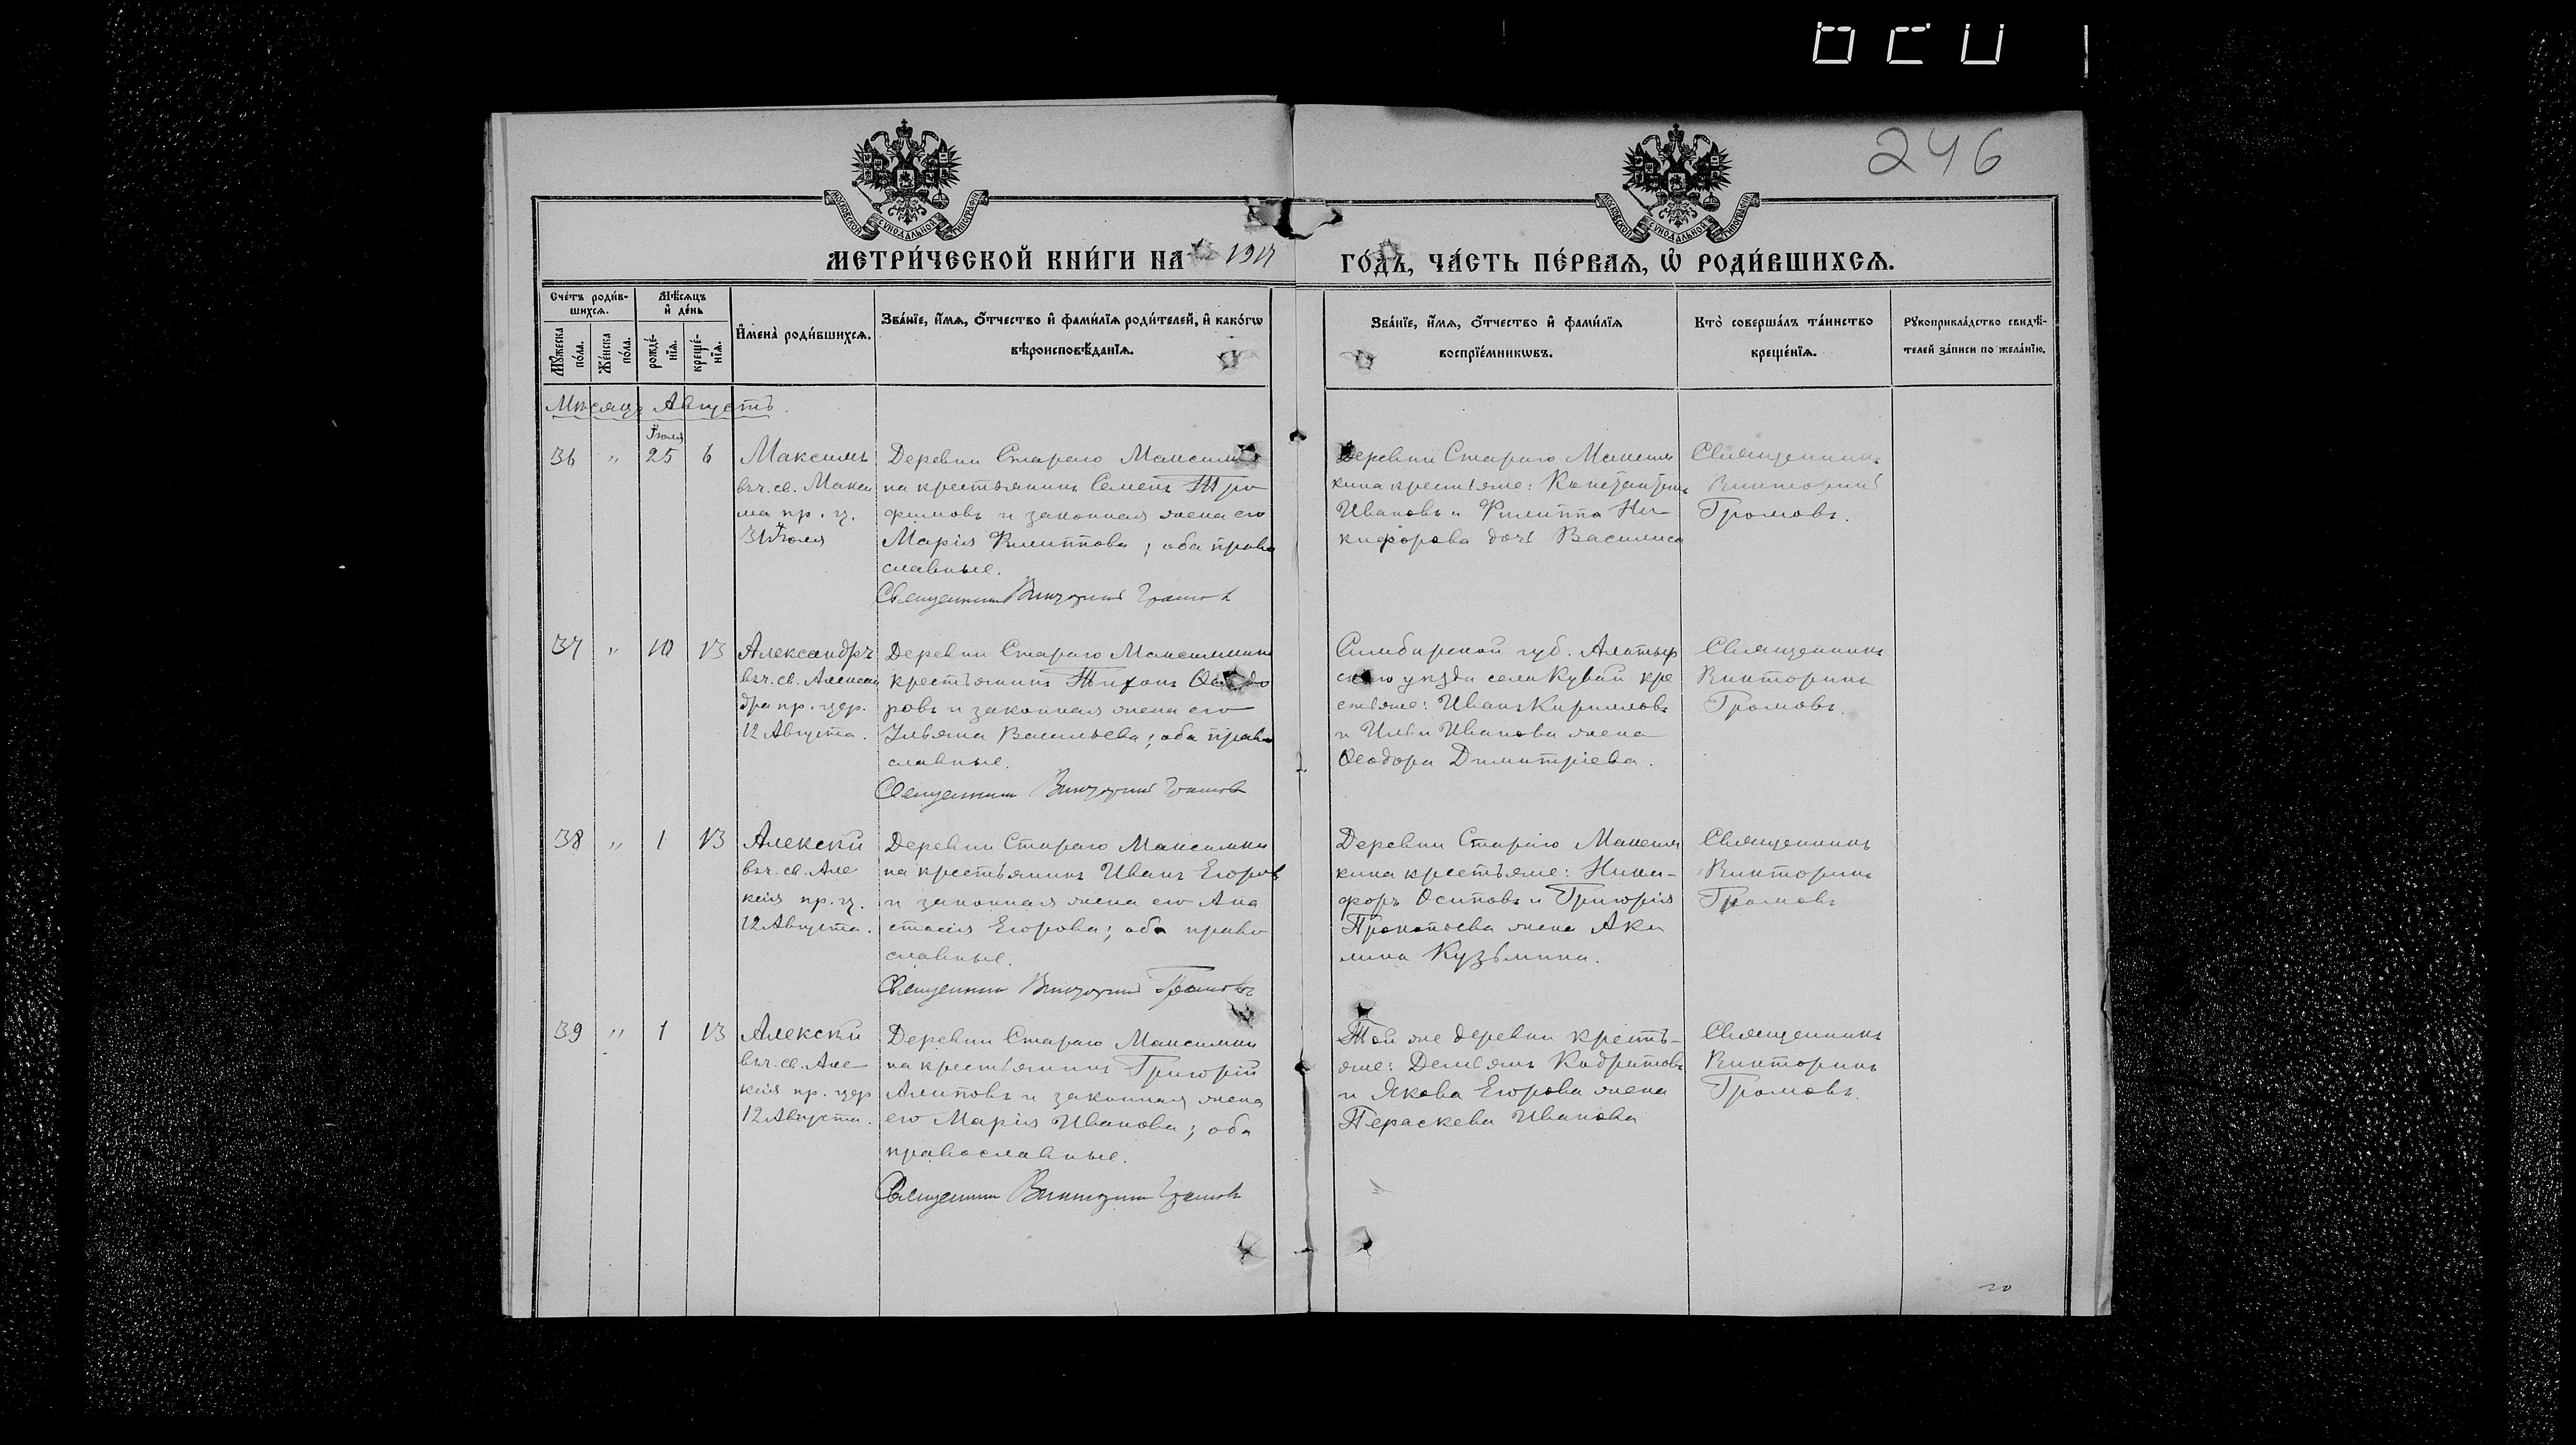 246
МОСКОВСКОЙ СѴНОДАЛЬНОЙ ТИПОГРАФІИ
МОСКОВСКОЙ СѴНОДАЛЬНОЙ ТИПОГРАФІИ
МЕТРИ́ЧЕСКОЙ КНИ́ГИ НА 1917 ГО́ДЪ, ЧА́СТЬ ПЕ́РВАѦ, Ѡ҆ РОДИ́ВШИХСѦ.
Сче́тъ роди́в-
шихсѧ.
Мꙋ́жеска
по́ла.
Же́нска
по́ла.
Мѣ́сѧцъ
и҆ де́нь
рожде́-
нїѧ.
креще́-
нїѧ.
И҆мена̀ роди́вшихсѧ.
Зва́нїе, и҆́мѧ, ѻ҆́тчество и҆ фами́лїѧ роди́телей, и҆ како́гѡ
вѣроисповѣ́данїѧ.
Зва́нїе, и҆́мѧ, ѻ҆́тчество и҆ фами́лїѧ
воспрїе́мникѡвъ.
Кто̀ соверша́лъ та́инство
креще́нїѧ.
Рꙋкоприкла́дство свидѣ́-
телей за́писи по жела́нїю.
Мѣсяцъ Августъ.
Іюля
36 " 25 6
Максимъ
въ ч. св. Макси
ма пр. ц.
31 Іюля
Деревни Стараго Максимки
на крестьянинъ Семенъ Тро
фимовъ и законная жена его
Марія Филиппова; оба право
славные.
Священникъ Викторинъ Громовъ
Деревни Стараго Максим
кина крестьяне: Константинъ
Ивановъ и Филиппа Ни-
кифорова дочь Василиса
Священникъ
Викторинъ
Громовъ.
37 " 10 13
Александръ
въ ч. св. Алексан
дра пр. цер.
12 Августа.
Деревни Стараго Максимкина
крестьянинъ Тихонъ Ѳеодо
ровъ и законная жена его
Ульяна Васильева; оба право
славные.
Священникъ Викторинъ Громовъ
Симбирской губ. Алатыр
скаго уѣзда села Кувай кре
стьяне: Иванъ Кирилловъ
и Ильи Иванова жена
Ѳеодора Димитріева.
Священникъ
Викторинъ
Громовъ.
38 " 1 13
Алексѣй
въ ч. св. Але
ксія пр. ц.
12 Августа.
Деревни Стараго Максимки
на крестьянинъ Иванъ Егоровъ
и законная жена его Ана
стасія Егорова; оба право
славные.
Священникъ Викторинъ Громовъ
Деревни Стараго Максим
кина крестьяне: Ники-
форъ Осиповъ и Григорія
Прокопьева жена Аки
лина Кузьмина.
Священникъ
Викторинъ
Громовъ
39 " 1 13
Алексѣй
въ ч. св. Але-
ксія пр. цер
12 Августа.
Деревни Стараго Максимки
на крестьянинъ Григорій
Алиповъ и законная жена
его Марія Иванова; оба
православные.
Священникъ Викторинъ Громовъ
Той же деревни кресть-
яне: Демьянъ
и Якова Егорова жена
Пераскева Иванова
Священникъ
Викторинъ
Громовъ.